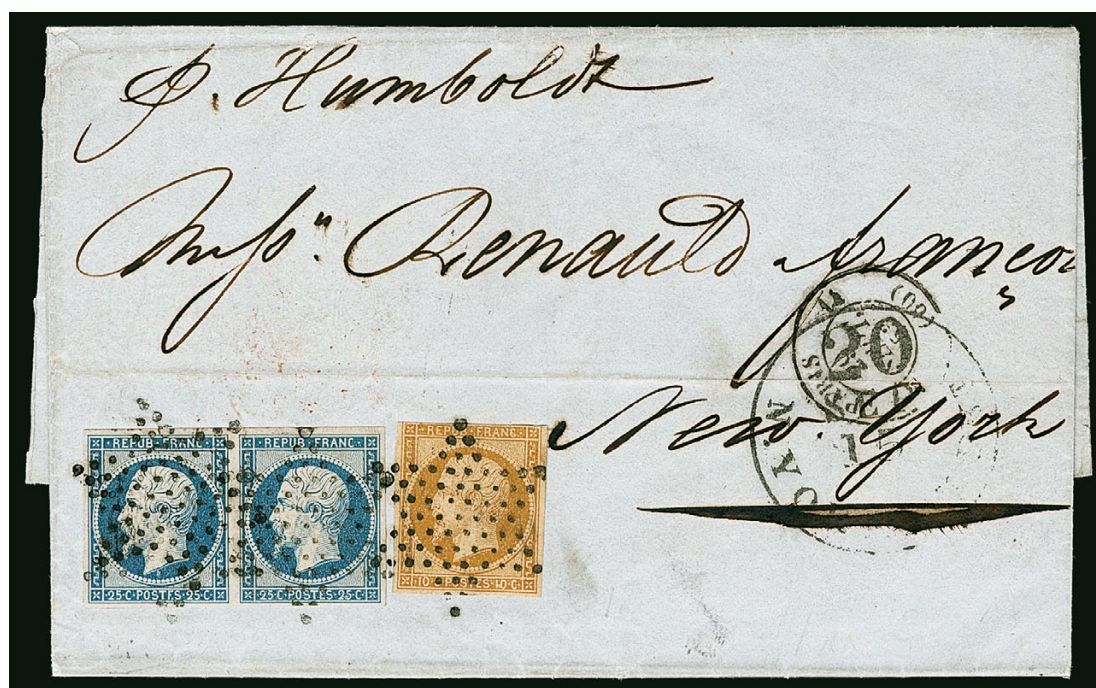 p. Humboldt
Messrs. Renauld françois
New York
20
(60)
PARIS
REPUB FRANC
25 C POSTES 25 C
REPUB FRANC
25 C POSTES 25 C
REPUB FRANC
10 C POSTES 10 C